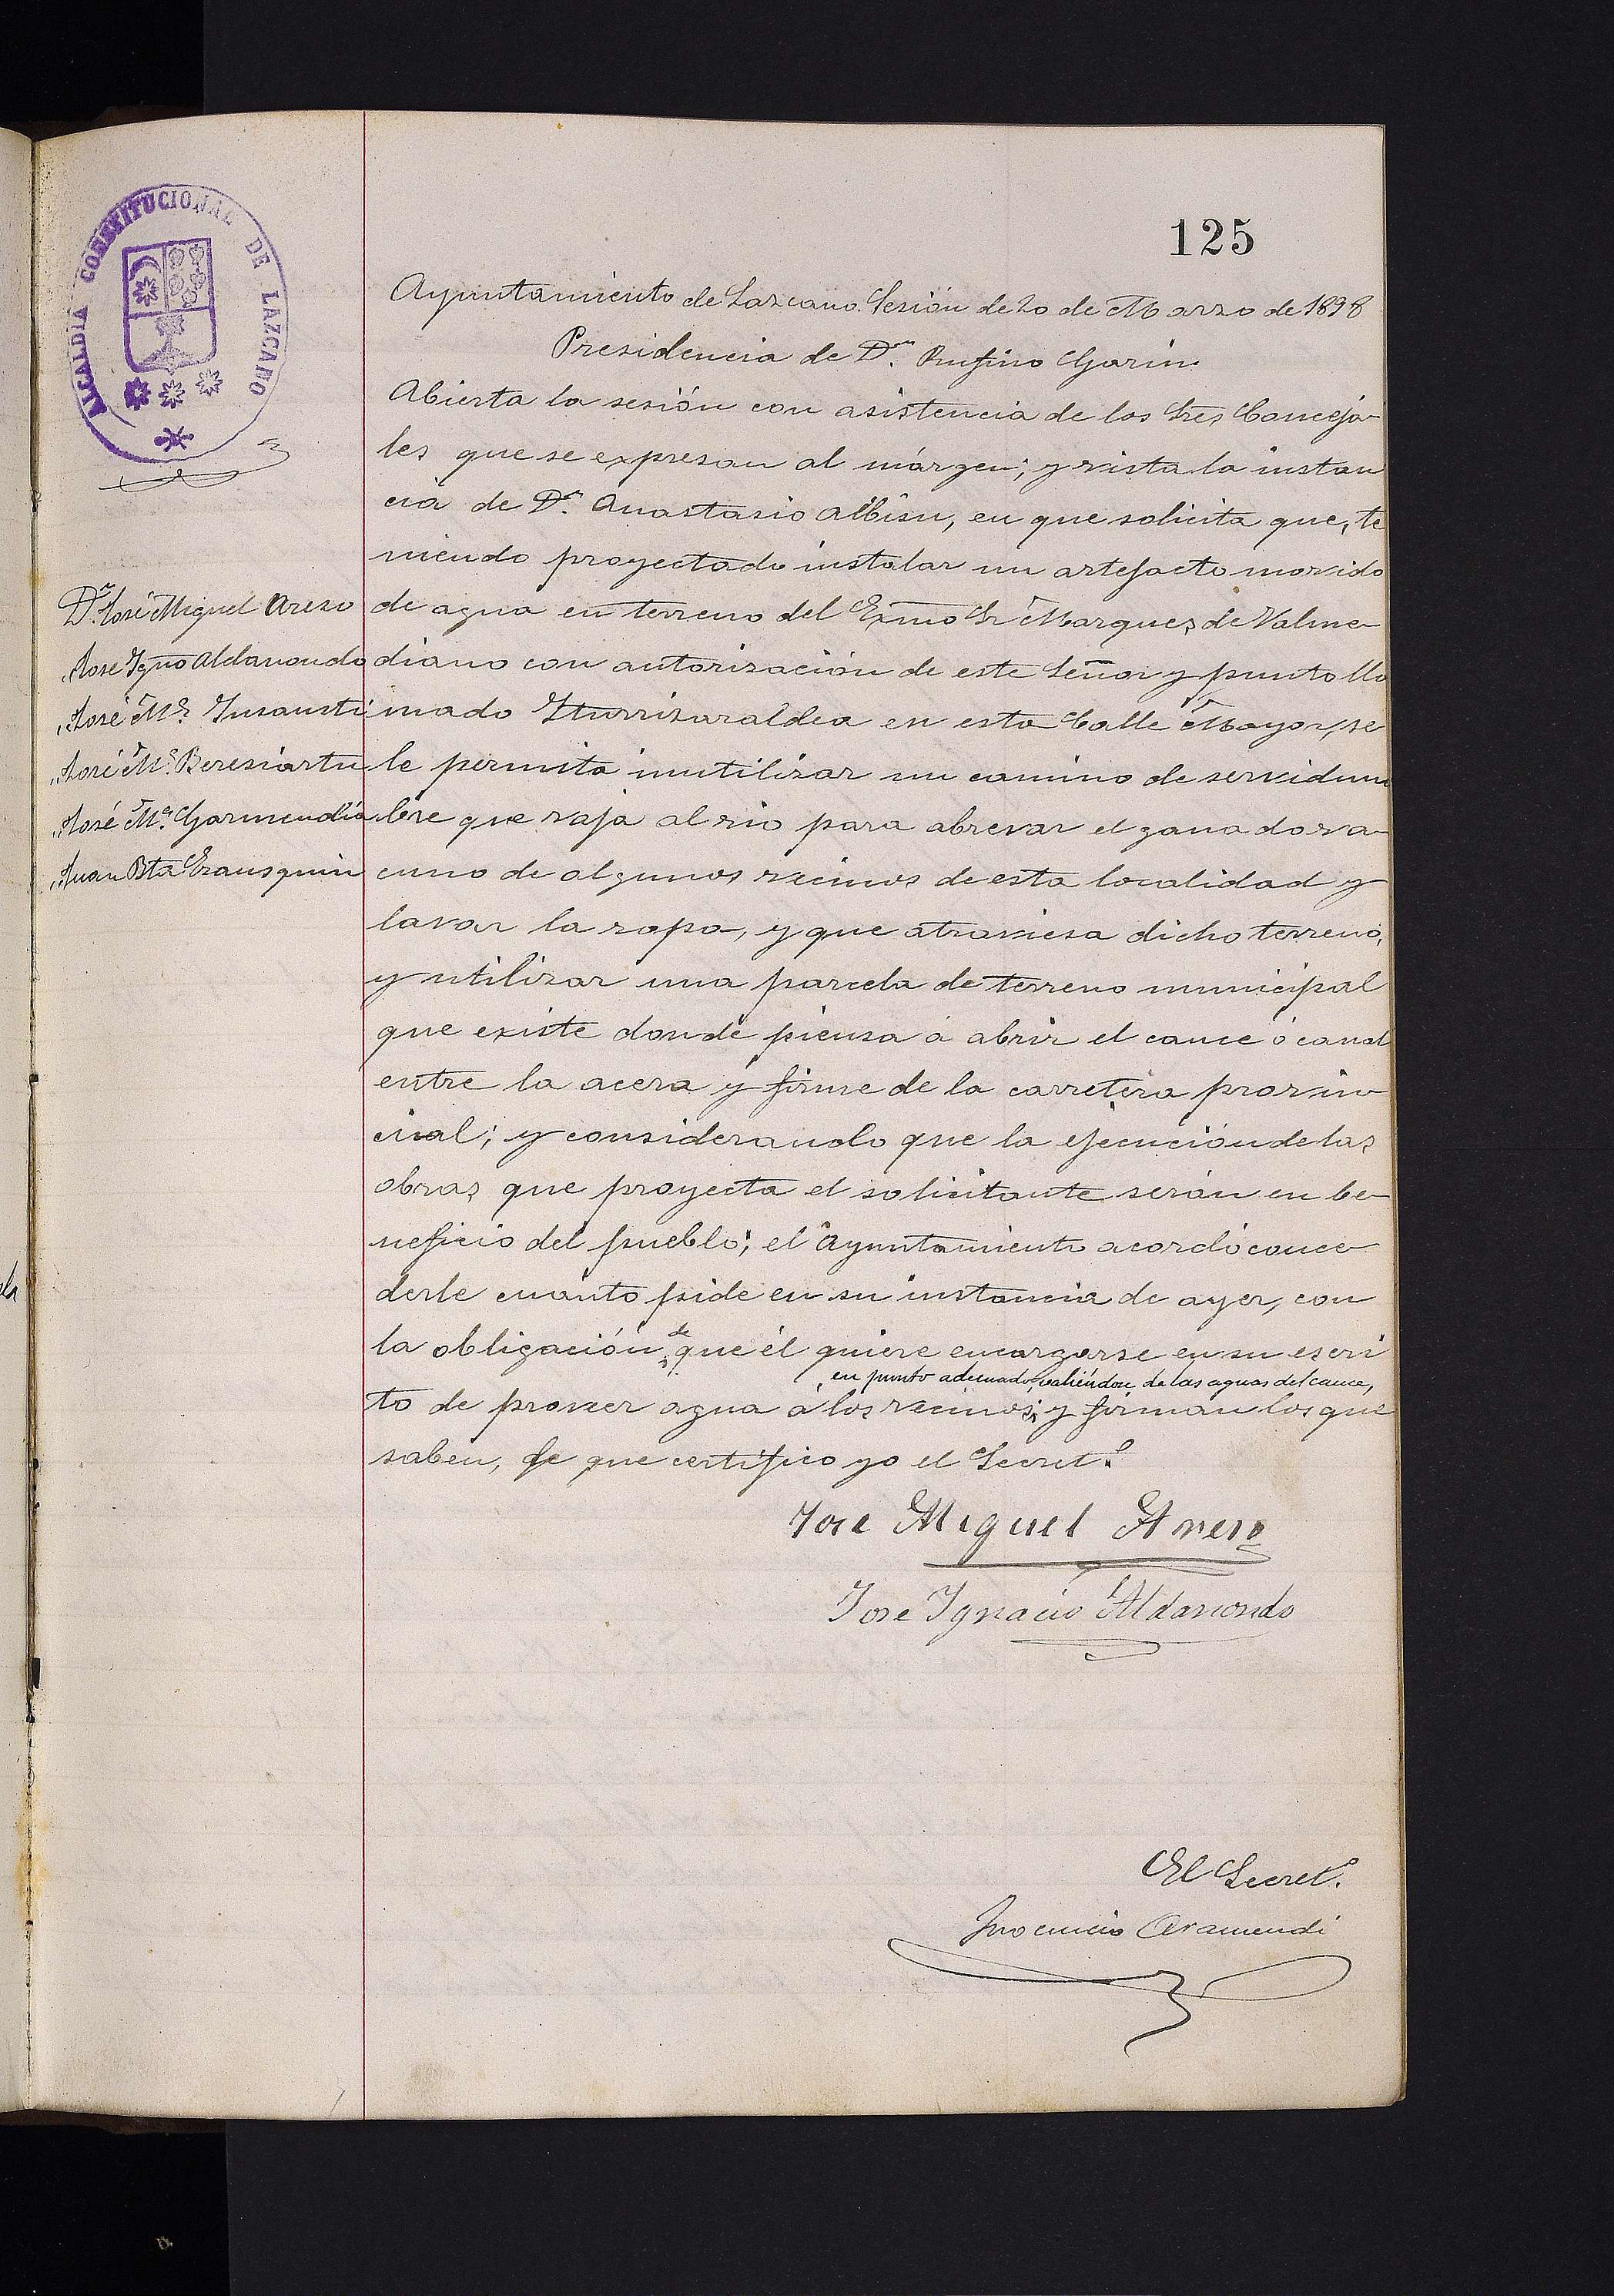 125
ALCALDIA CONSTITUCIONAL DE LAZCANO
Ayuntamiento de Lazcano. Sesión de 20 de Marzo de 1898
Presidencia de Dn. Rufino Garin.
Abierta la sesión con asistencia de los Sres Conceja-
les que se expresan al márgen; y vista la instan
cia de Dn. Anastasio Albisu, en que solicita que, te
niendo proyectado instalar un artefacto movido
de agua en terreno del Exmo Sr Marques de Valme-
diano con autorización de este Señor y punto lla
mado Yturrizaraldea en esta Calle Mayor, se
le permita inutilizar un camino de servidum
bre que vaja al rio para abrevar el ganado va-
cuno de algunos vecinos de esta localidad y
lavar la ropa, y que atraviesa dicho terreno,
y utilizar una parcela de terreno municipal
que existe donde piensa á abrir el cauce ó canal
entre la acera y firme de la carretera provin-
cial; y considerando que la ejecución de las
obras que proyecta el solicitante serán en be-
neficio del pueblo; el Ayuntamiento acordó conce-
derle cuánto pide en su instancia de ayer, con
la obligación de que él quiere encargarse en su escri
en punto adecuado, valiéndose de las aguas del cauce,
to de proveer agua á los vecinos; y firman los que
saben, de que certifico yo el Secret.o
Dn. José Miguel Areso
" Jose Ygno Aldanondo
" José Ma. Insausti
" José Ma. Beresiartu
" José Ma. Garmendia
" Juan Bta Erausquin
Jose Miguel Areso
Jose Ygnacio Aldanondo
El Secret.o
Inocencio Aramendi